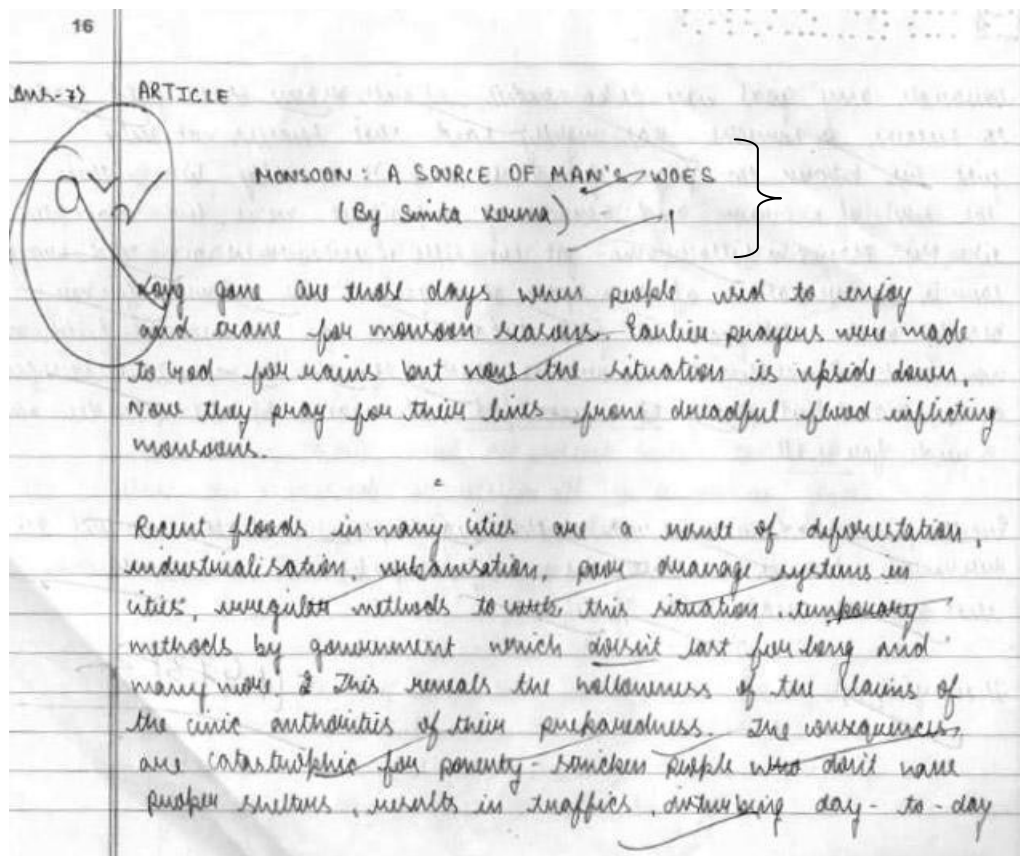 16
Ans-7) ARTICLE
9½
MONSOON: A SOURCE OF MAN'S WOES
(By Smita Verma) 1
Long gone are those days when people used to enjoy
and crave for monsoon seasons. Earlier prayers were made
to God for rains but now the situation is upside down.
Now they pray for their lives from dreadful flood inflicting
monsoons.
Recent floods in many cities are a result of deforestation,
industrialisation, urbanisation, poor drainage systems in
cities, irregular methods to this situation, temporary
methods by government which doesn't last for long and
many more. This reveals the hollowness of the claims of
the civic authorities of their preparedness. The consequences
are catastrophic for poverty-stricken people who don't have
proper shelters, results in traffics, disturbing day-to-day